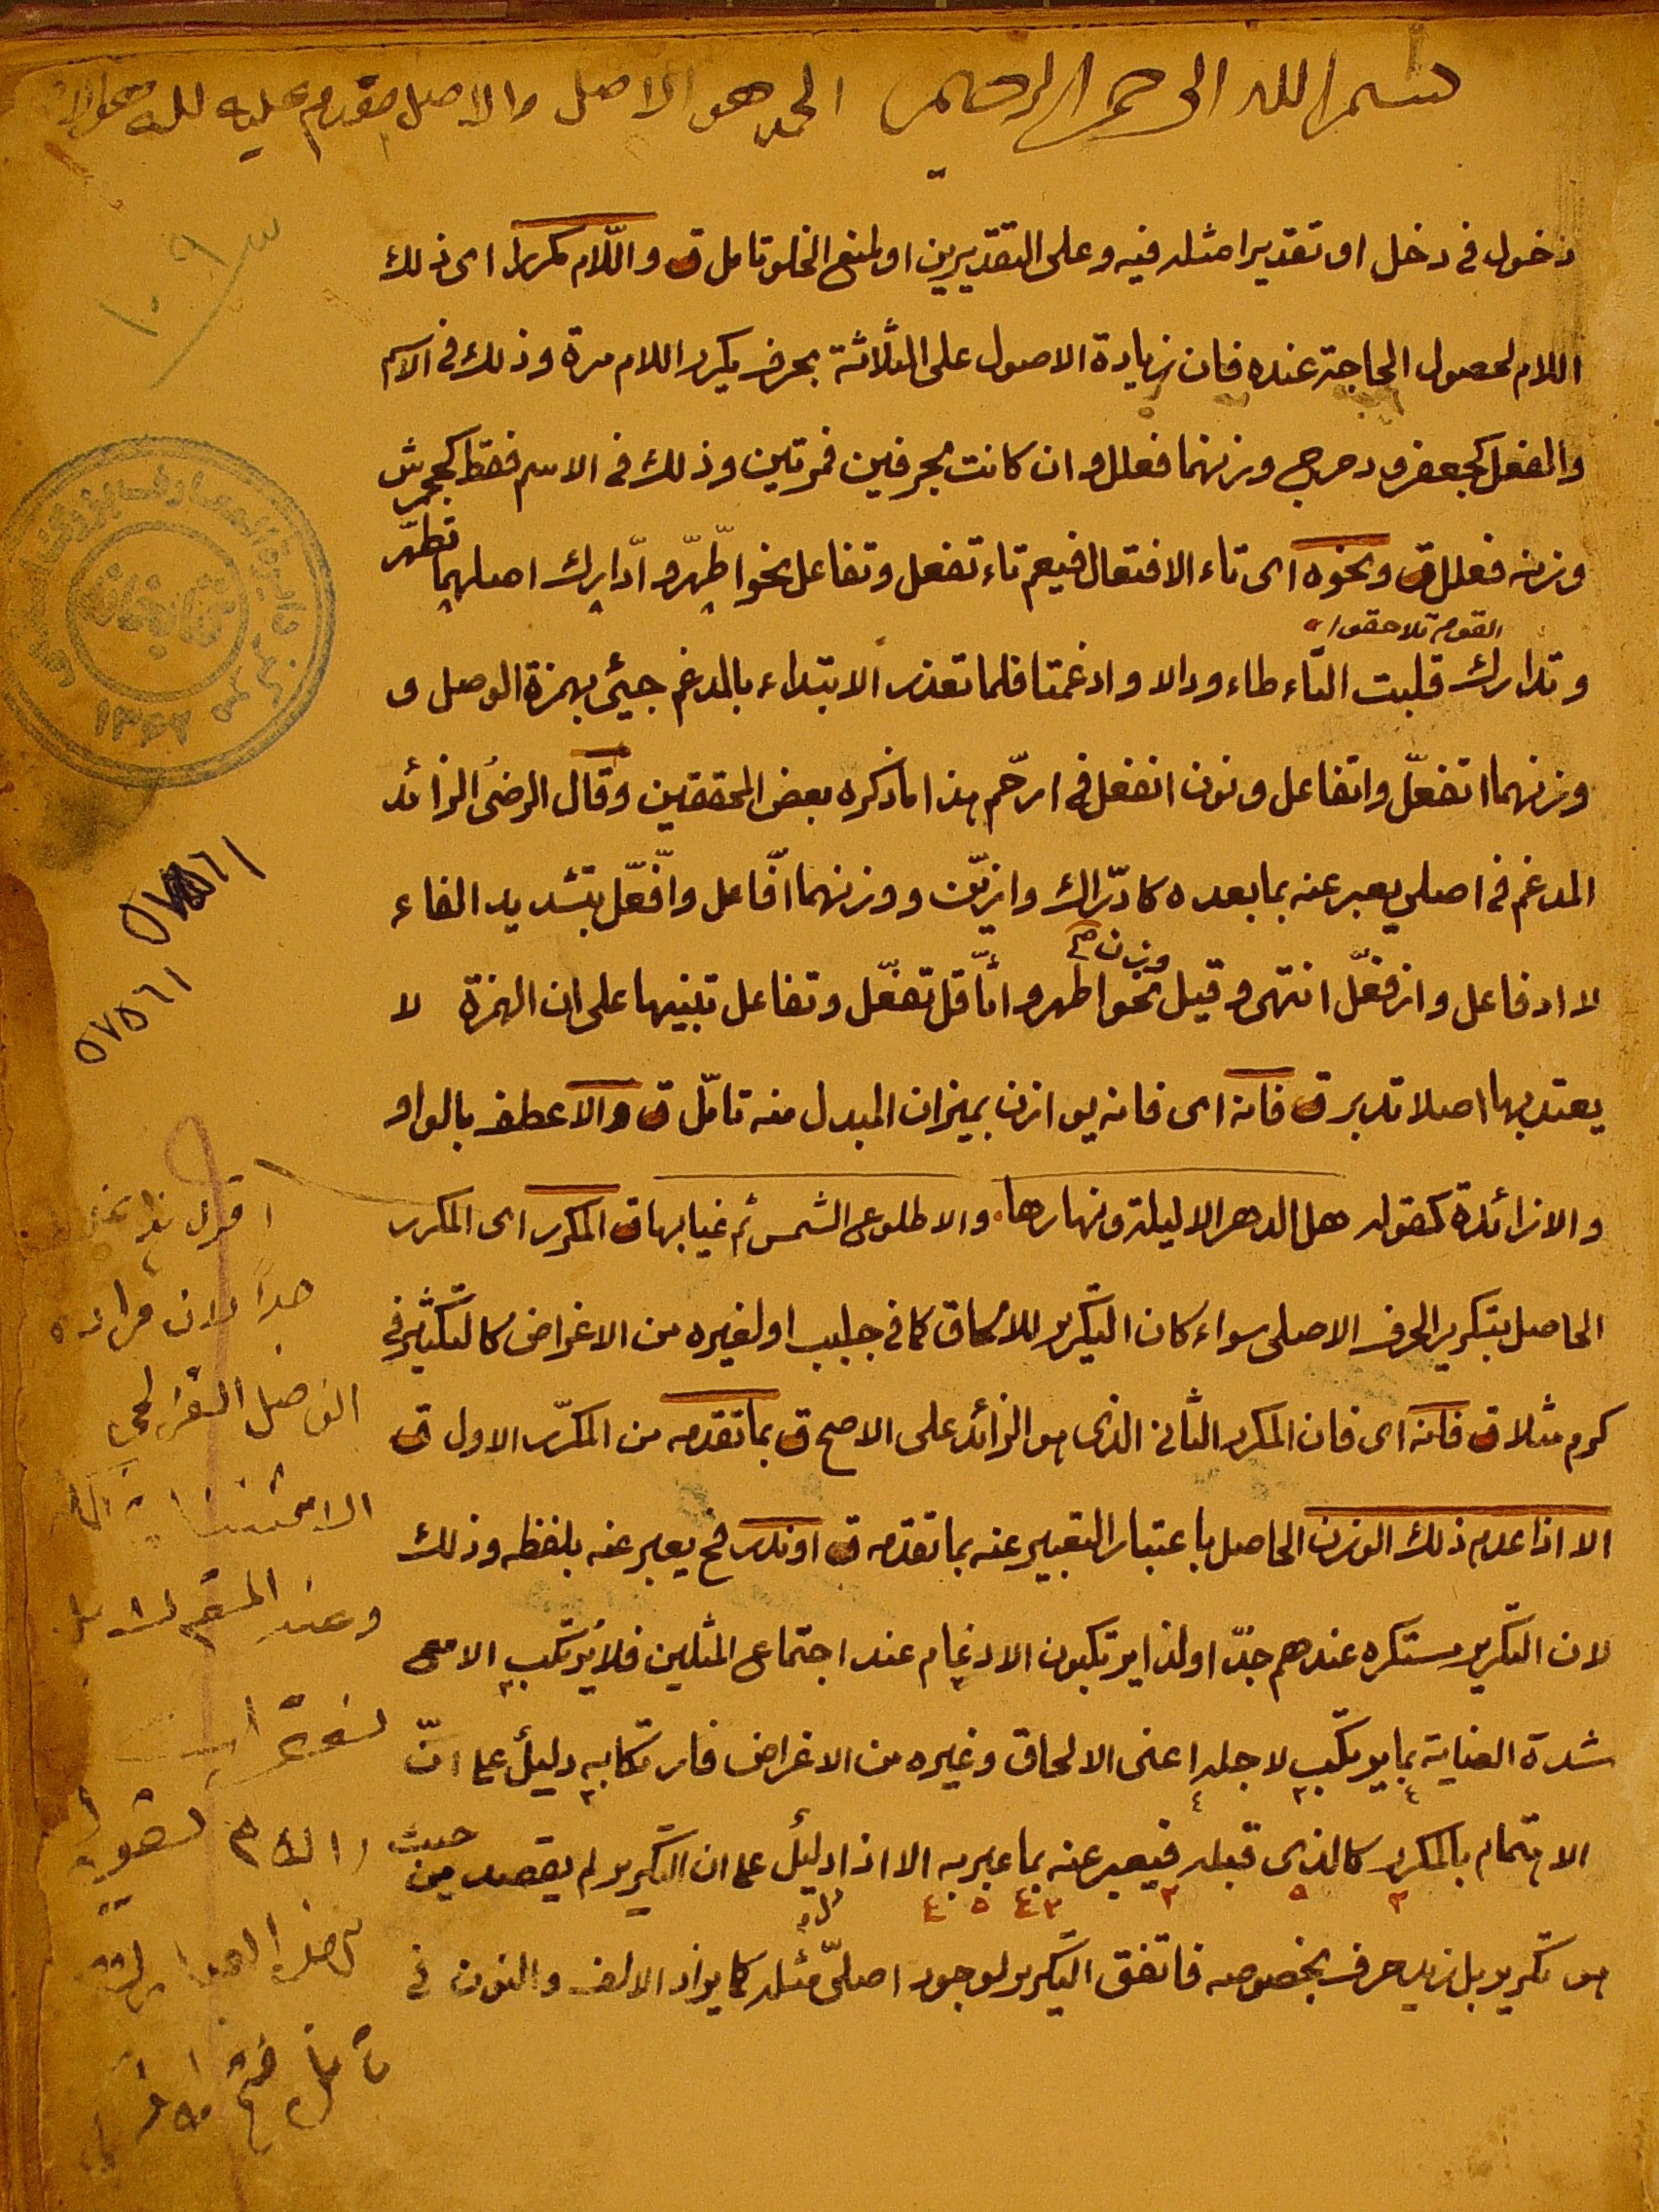 بسم الله الرحمن الرحيم الحمد هو الاصل والاصل مقدم عليه لله
دخول فى دخل او تقديرا مثله فيه وعلى التقديرين او لمنع الخلو تامل ق واللّام مكررا اى ذلك
اللام لحصول الحاجة عنده فان زيادة الاصول على الثلاثة بحرف يكرر اللام مرة وذلك فى الاسم
والفعل كجعفر ودحرج وزنهما فعلل وان كانت بحرفين فمرتين وذلك فى الاسم فقط كجحمرش
وزنه فعللل ق ونحوه اى تاء الافتعال فيعم تاء تفعل وتفاعل نحو اطّهّر وادّارك اصلهما تطهّر
القوم تلاحقوا
وتدارك قلبت التاء طاء ودالا وادغمتا فلما تعذر الابتداء بالمدغم جيئ بهمزة الوصل و
وزنهما اتفعّل واتفاعل ونون انفعل فى امرحّم هذا ما ذكره بعض المحققين وقال الرضى الزائد
المدغم فى اصلى يعبر عنه بما بعده كادّارك وازيّن ووزنهما افّاعل وافّعّل بتشديد الفاء
وزن صح
لا ادفاعل وازفعّل انتهى وقيل نحو اطهر واثّاقل تفعّل وتفاعل تنبيها على ان الهمزة لا
يعتد بها اصلا تدبر ق فانه اى فانه يوازن بميزان المبدل منه تامّل ق والا عطف بالواو
والا زائدة كقوله هل الدهر الا ليلة ونهارها والا طلوع الشمس ثم غيابها ق المكرر اى المكرر
الحاصل بتكرير الحرف الاصلى سواء كان التكرير للالحاق كما فى جلبب او لغيره من الاغراض كالتكثير فى
كرم مثلا ق فانه اى فان المكرر الثانى الذى هو الزائد على الاصح ق بما تقدمه من المكرّر الاول ق
الا اذا عدم ذلك الوزن الحاصل باعتبار التعبير عنه بما تقدمه ق او ندر فح يعبر عنه بلفظه وذلك
لان التكرير مستكره عندهم جدّا ولذا يرتكبون الادغام عند اجتماع المثلين فلا يرتكب الا مع
شدة العناية بما يرتكب لاجله اعنى الالحاق وغيره من الاغراض فارتكابه دليل على انّ
الاهتمام بالمكرر كالذى قبله فيعبر عنه بما عبر به الا اذا دليل على ان التكرير لم يقصد من حيث
هو تكرير بل زيد حرف بخصوصه فاتفق التكرير لوجود اصلىّ مثله كما يزاد الالف والنون فى
١٠٩
١٣٤٢
٥٧٥٦١
اقول
جدا لان
الفاضل
وعند